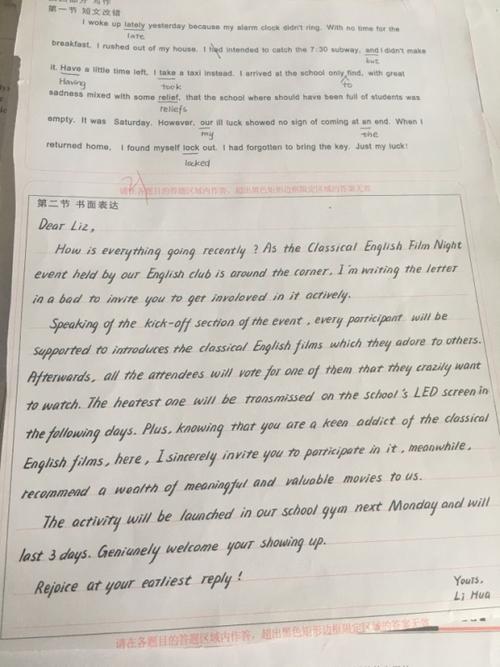 第一节 短文改错
I woke up lately yesterday because my alarm clock didn't ring. With no time for the
late
breakfast, I rushed out of my house. I had intended to catch the 7:30 subway, and I didn't make
but
it. Have a little time left, I take a taxi instead. I arrived at the school only find, with great
Having took to
sadness mixed with some relief, that the school where should have been full of students was
reliefs
empty. It was Saturday. However, our ill luck showed no sign of coming at an end. When I
my the
returned home, I found myself lock out. I had forgotten to bring the key. Just my luck!
locked
请在各题目的答题区域内作答，超出黑色矩形边框限定区域的答案无效
第二节 书面表达
Dear Liz,
How is everything going recently? As the Classical English Film Night
event held by our English club is around the corner, I'm writing the letter
in a bad to invite you to get involoved in it actively.
Speaking of the kick-off section of the event, every participant will be
supported to introduces the classical English films which they adore to others.
Afterwards, all the attendees will vote for one of them that they crazily want
to watch. The heatest one will be transmissed on the school's LED screen in
the following days. Plus, knowing that you are a keen addict of the classical
English films, here, I sincerely invite you to participate in it, meanwhile,
recommend a wealth of meaningful and valuable movies to us.
The activity will be launched in our school gym next Monday and will
last 3 days. Geniunely welcome your showing up.
Rejoice at your earliest reply!
Yours,
Li Hua
请在各题目的答题区域内作答，超出黑色矩形边框限定区域的答案无效